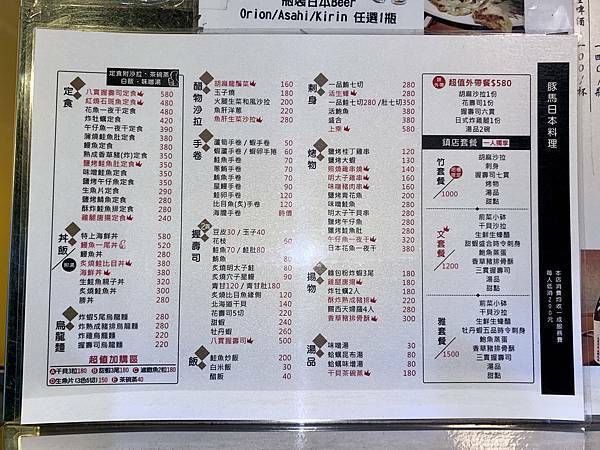 瓶裝日本Beer
Orion/Asahi/Kirin 任選1瓶
定食
定食附沙拉.茶碗蒸
白飯.味噌湯
八貫握壽司定食 580
紅燒石斑魚定食 480
花魚一夜干定食 380
炸牡蠣定食 420
午仔魚一夜干定食 380
蒲燒鮭魚肚定食 380
鰻魚定食 380
熟成香草豬(炸)定食 350
鹽烤鮭魚肚定食 350
味噌鮭魚定食 280
鹽烤午仔魚定食 290
生魚片定食 290
鹽烤鯖魚定食 280
酥炸鮭魚排定食 280
雞腿唐揚定食 240
丼飯
特上海鮮丼 580
鰻魚一尾丼 520
鰻魚丼 280
炙燒鮭魚比目丼 380
海鮮丼 380
生鮭魚親子丼 320
炙燒鮭魚丼 300
勝丼 280
烏龍麵
炸蝦5尾烏龍麵 280
炸熟成豬排烏龍麵 280
炸雞烏龍麵 220
握壽司烏龍麵 220
超值加購區
A干貝3粒180 B甜蝦3尾180 C 滷鮑魚2粒180
D生魚片(3色6切)150 E茶碗蒸40
醋物沙拉
胡麻龍鬚菜 160
玉子燒 180
火腿生菜和風沙拉 200
魚肝洋蔥 220
魚肝生菜沙拉 280
手卷
蘆筍手卷/蝦手卷 50
蝦蘆手卷/蝦卵手捲 60
鮭魚手卷 70
蔥鮪手卷 70
鰻魚手卷 90
星鰻手卷 90
軟絲手卷 100
比目魚(炙)手卷 120
海膽手卷 時價
握壽司
豆皮30/玉子40
花枝 60
鮭魚70/鮭肚80
炙燒明太子鮭 80
炙燒穴子星鰻 90
青甘120/青甘肚180
炙燒比目魚緣側 120
北海道干貝 140
花壽司5切 220
甜蝦 180
牡丹蝦 260
八貫握壽司 500
飯
鮭魚炒飯 200
白米飯 30
醋飯 40
刺身
一品鮪七切 280
活生蠔 280
一品鮭七切280/肚七切350
活鮑魚 280
盛合 380
上樂 580
烤物
鹽烤桂丁雞串 180
鹽烤大蝦 130
照燒雞串燒 140
明太子雞串 160
味噌豬肉串 180
鹽烤青花魚 200
味噌鮭魚 200
明太子干貝串 280
鹽烤午仔魚 220
鹽烤鮭魚肚 280
午仔魚一夜干 320
日本花魚一夜干 380
揚物
雞包粉炸蝦3尾 180
雞腿唐揚 180
炸牡蠣2入 180
酥炸熟成豬 220
爾西天婦羅4入 280
香草豬排骨酥 300
湯品
味噌湯 30
蛤蠣昆布湯 80
蛤蠣味噌湯 80
干貝茶碗蒸 180
超值外帶餐$580
胡麻沙拉1份
花壽司1份
握壽司六貫
日式炸雞腿1份
湯品2碗
鎮店套餐 一人獨享
竹套餐
1000
胡麻沙拉
刺身
握壽司七貫
烤物
湯品
甜點
文套餐
1200
前菜小缽
干貝沙拉
生鮮生蠔醋
甜蝦盛合時令刺身
鮑魚蒸蛋
香草豬排骨酥
三貫握壽司
湯品
甜點
雅套餐
1500
前菜小缽
干貝沙拉
生鮮生蠔醋
牡丹蝦五品時令刺身
鮑魚蒸蛋
香草豬排骨酥
三貫握壽司
湯品
甜點
豚馬日本料理
本店消費均收一成服務費
每人低消200元